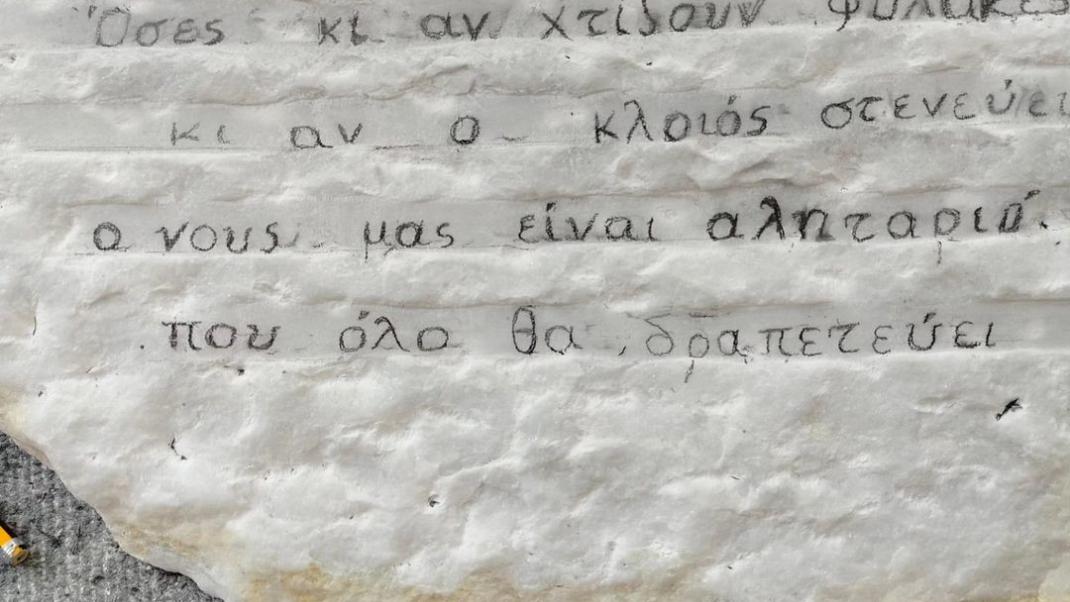 Όσες κι αν χτίζουν φυλακές
κι αν ο κλοιός στενεύει
ο νους μας είναι αληταριό
που όλο θα δραπετεύει